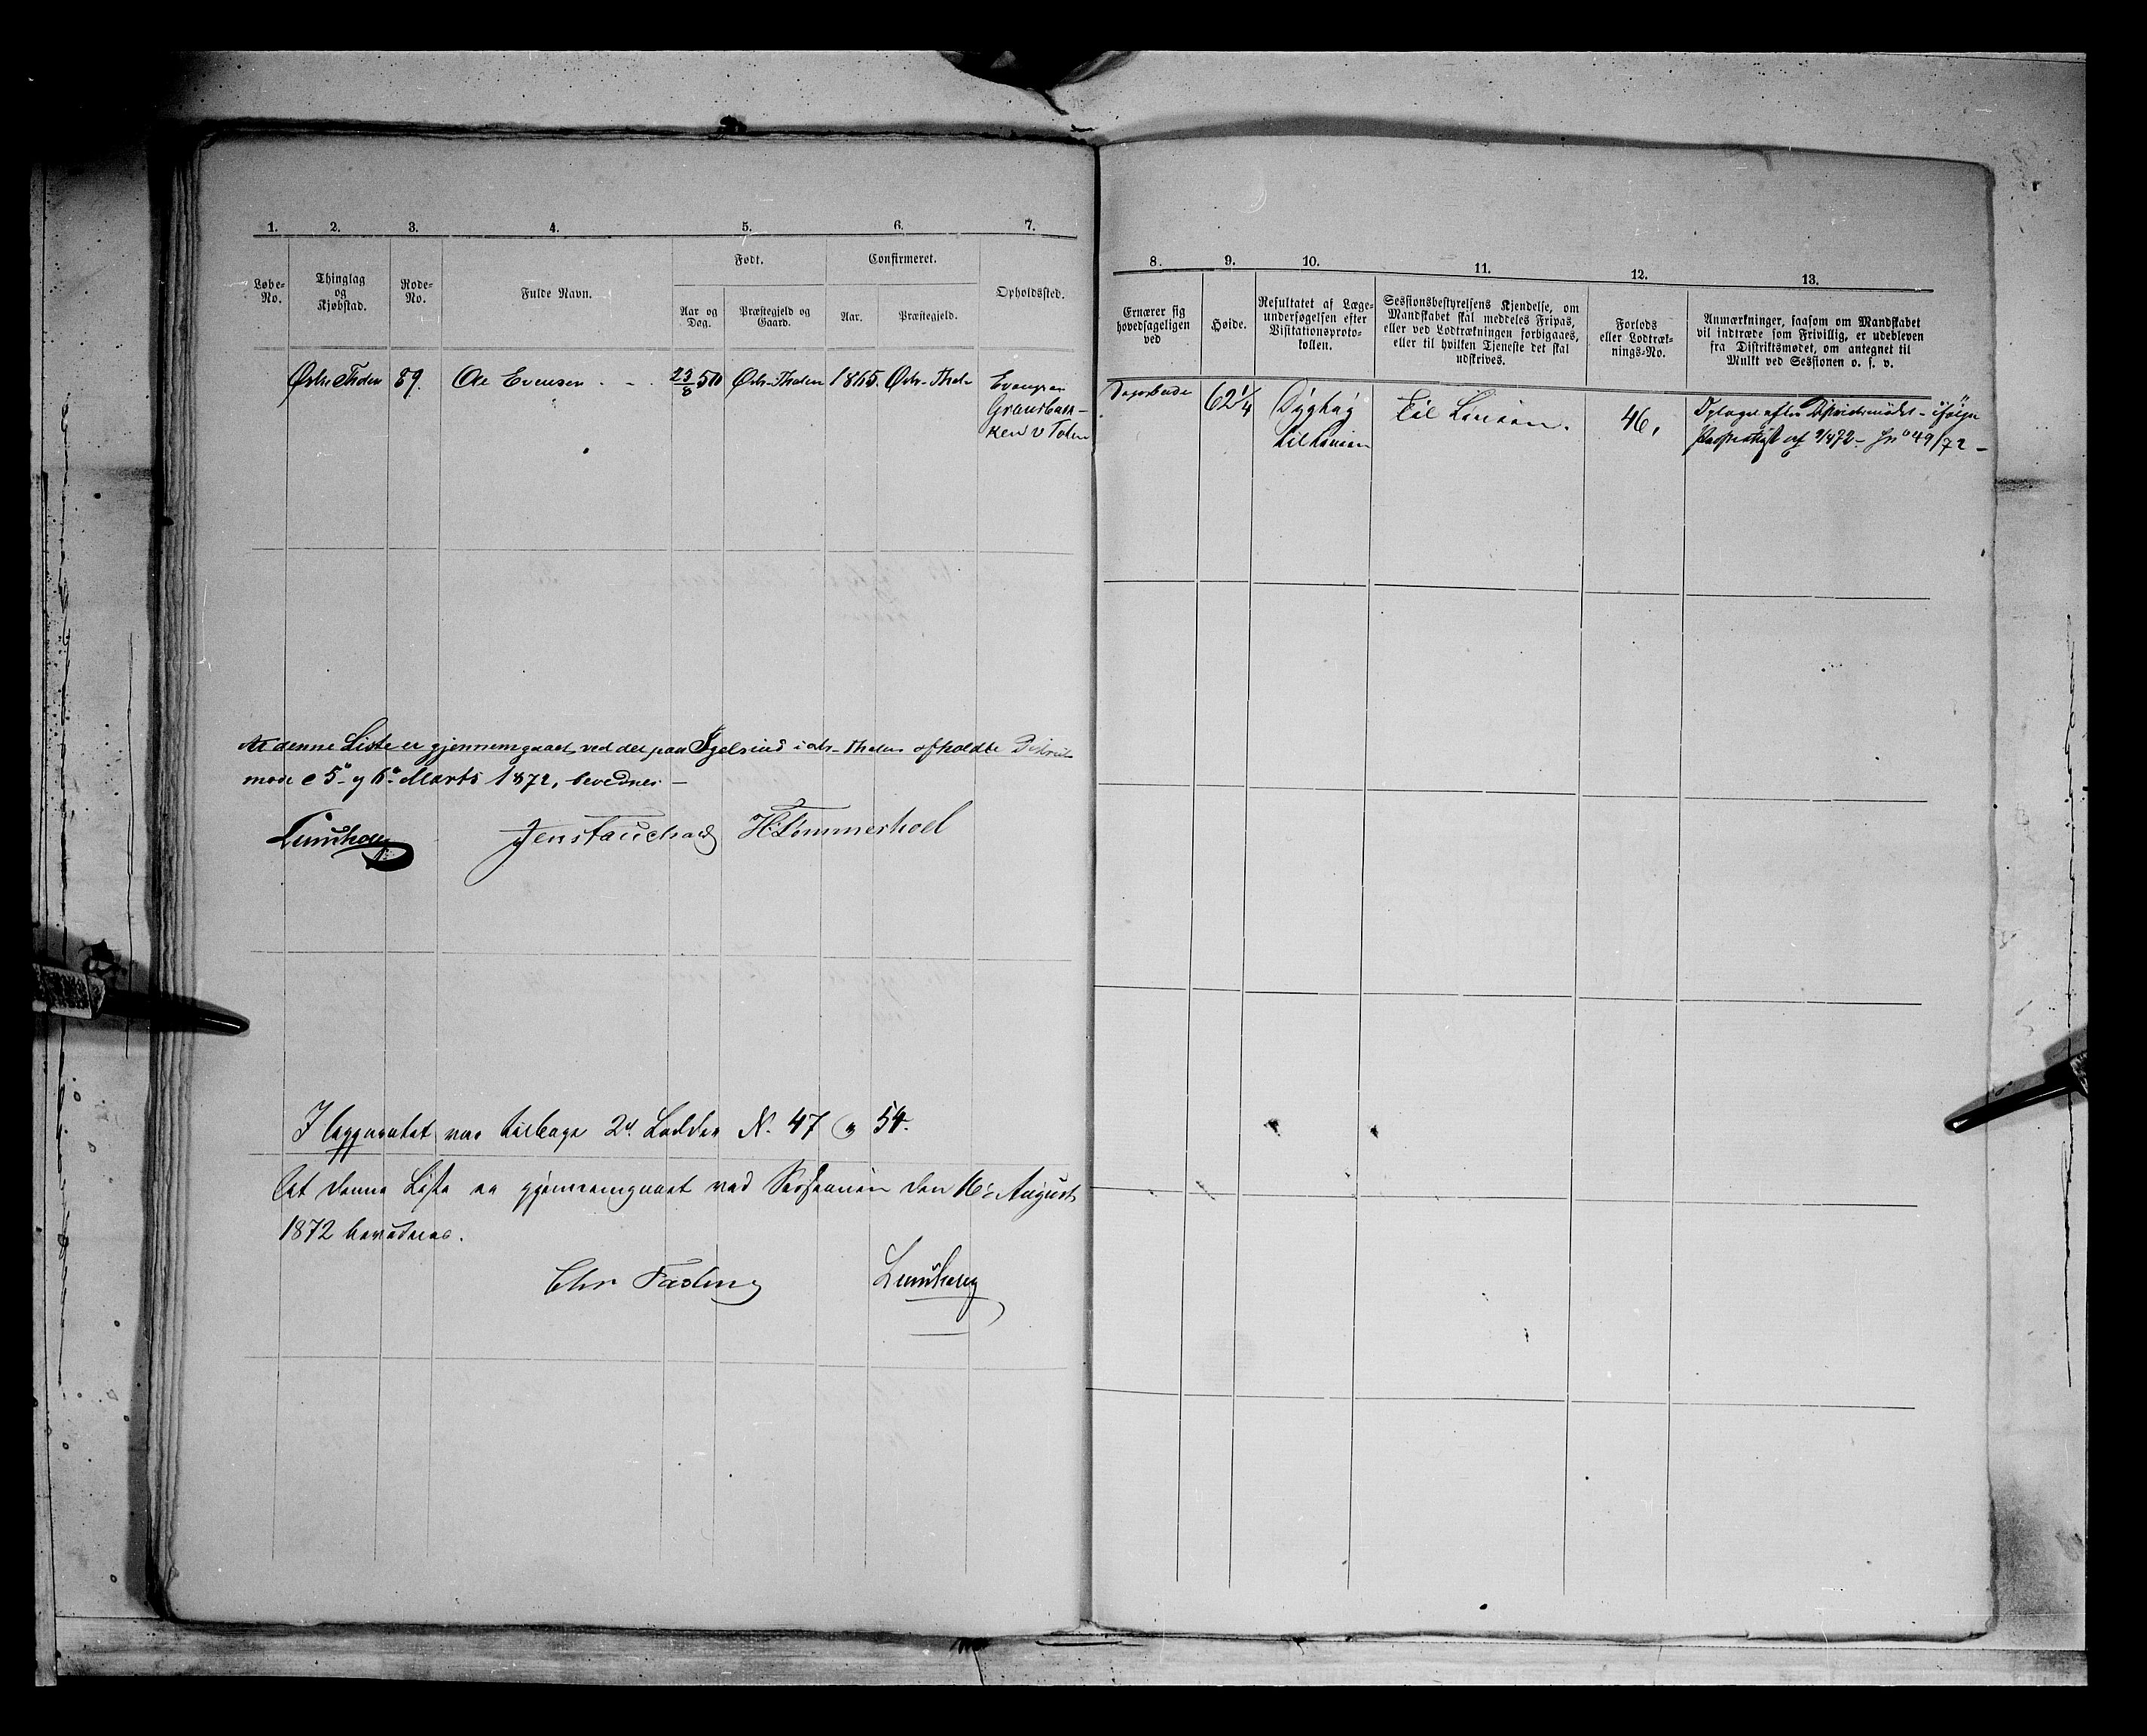 1. 2. 3. 4. 5. 6. 7.
Løbe-
No.
Thinglag
og
Kjøbstad.
Rode-
No.
Fulde Navn.
Født.
Aar og
Dag.
Præstegjeld og
Gaard.
Confirmeret.
Aar.
Præstegjeld.
Opholdssted.
Østre Thoten 89. Ole Evensen 23/8 50 Østr. Thoten 1865. Østr. Thot.
Evengren
Gransbak-
ken V Toten
At denne Liste er gjennemgaaet ved det paa i Østr. Thoten afholdte Distrikts
møde 5te og 6te Marts 1872, bevidnes
H. Tømmerhoel
I Apparatet var tilbage Lodder N. 47 og 54.
At denne Liste er gjennemgaaet ved Sessionen den 16de August
1872 bevidnes.
Chr
8. 9. 10. 11. 12. 13.
Ernærer sig
hovedsageligen
ved
Høide.
Resultatet af Læge-
undersøgelsen efter
Visitationsproto-
kollen.
Sessionsbestyrelsens Kjendelse, om
Mandskabet skal meddeles Fripas,
eller ved Lodtrækningen forbigaaes,
eller til hvilken Tjeneste det skal
udskrives.
Forlods
eller Lodtræk-
nings-No.
Anmærkninger, saasom om Mandskabet
vil indtræde som Frivillig, er udebleven
fra Distriktsmødet, om antegnet til
Mulkt ved Sessionen o. s. v.
62 1/4
Dygtig
til Linien
Til Linien.
46.
Optaget efter Distriktsmødet - ifølge
49/72 -